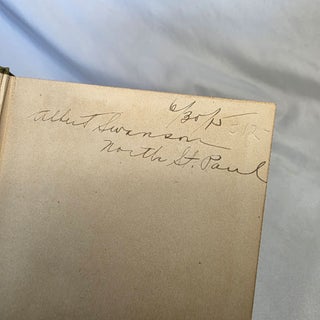 6/30/15
Albert Swanson
North St. Paul